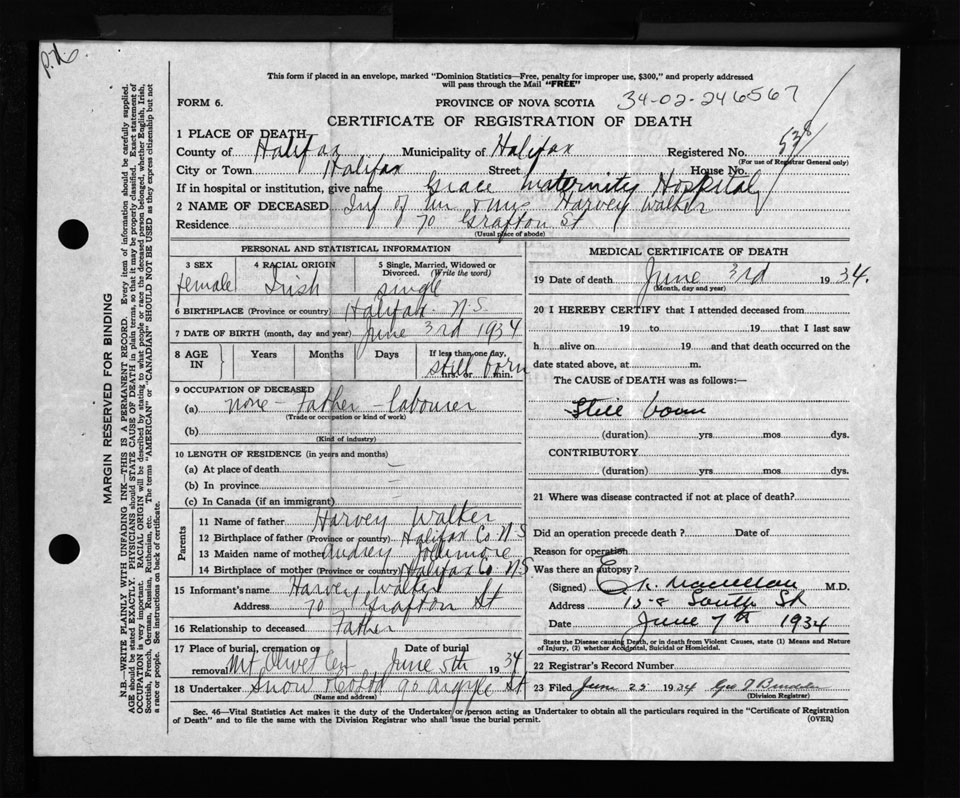 P.H.
This form if placed in an envelope, marked "Dominion Statistics—Free, penalty for improper use, $300," and properly addressed
will pass through the Mail "FREE"
FORM 6.
PROVINCE OF NOVA SCOTIA
34-02-246567
CERTIFICATE OF REGISTRATION OF DEATH
1 PLACE OF DEATH
County of Halifax Municipality of Halifax Registered No. 538
(For use of Registrar General only)
City or Town Halifax Street House No.
If in hospital or institution, give name Grace Maternity Hospital
2 NAME OF DECEASED Inf of Mr & Mrs Harvey Walker
Residence 70 Grafton St
(Usual place of abode)
PERSONAL AND STATISTICAL INFORMATION
3 SEX
female
4 RACIAL ORIGIN
Irish
5 Single, Married, Widowed or
Divorced. (Write the word)
single
6 BIRTHPLACE (Province or country) Halifax N.S.
7 DATE OF BIRTH (month, day and year) June 3rd 1934
8 AGE IN
Years
Months
Days
If less than one day,
hrs. or min.
still born
9 OCCUPATION OF DECEASED
(a) none - Father - labourer
(Trade or occupation or kind of work)
(b)
(Kind of industry)
10 LENGTH OF RESIDENCE (in years and months)
(a) At place of death —
(b) In province —
(c) In Canada (if an immigrant) —
Parents
11 Name of father Harvey Walker
12 Birthplace of father (Province or country) Halifax Co N.S
13 Maiden name of mother Audrey Jollimore
14 Birthplace of mother (Province or country) Halifax Co N.S
15 Informant's name Harvey Walker
Address 70 Grafton St
16 Relationship to deceased Father
17 Place of burial, cremation or
removal Mt Olivet Cem
Date of burial
June 5th 1934
18 Undertaker Snow & Co Ltd 90 Argyle St
(Name and address)
MEDICAL CERTIFICATE OF DEATH
19 Date of death June 3rd 1934.
(Month, day and year)
20 I HEREBY CERTIFY that I attended deceased from
19 to 19 that I last saw
h alive on 19 and that death occurred on the
date stated above, at m.
The CAUSE OF DEATH was as follows:—
Still born
(duration) yrs mos dys.
CONTRIBUTORY
(duration) yrs. mos. dys.
21 Where was disease contracted if not at place of death?
Did an operation precede death? Date of
Reason for operation
Was there an autopsy?
(Signed) E. K. Maclellan M.D.
Address 158 South St
Date June 7th 1934
State the Disease causing Death, or in death from Violent Causes, state (1) Means and Nature
of Injury, (2) whether Accidental, Suicidal or Homicidal.
22 Registrar's Record Number
23 Filed June 25 1934 Geo
(Division Registrar)
Sec. 46—Vital Statistics Act makes it the duty of the Undertaker or person acting as Undertaker to obtain all the particulars required in the "Certificate of Registration
of Death" and to file the same with the Division Registrar who shall issue the burial permit.
(OVER)
MARGIN RESERVED FOR BINDING
N.B.—WRITE PLAINLY WITH UNFADING INK—THIS IS A PERMANENT RECORD. Every item of information should be carefully supplied.
AGE should be stated EXACTLY. PHYSICIANS should STATE CAUSE OF DEATH in plain terms, so that it may be properly classified. Exact statement of
OCCUPATION is very important. RACIAL ORIGIN will be described by stating to what people or race the deceased person belonged, whether English, Irish,
Scottish, French, German, Russian, Ruthenian, etc. The terms "AMERICAN" or "CANADIAN" SHOULD NOT BE USED as they express citizenship but not
a race or people. See instructions on back of certificate.